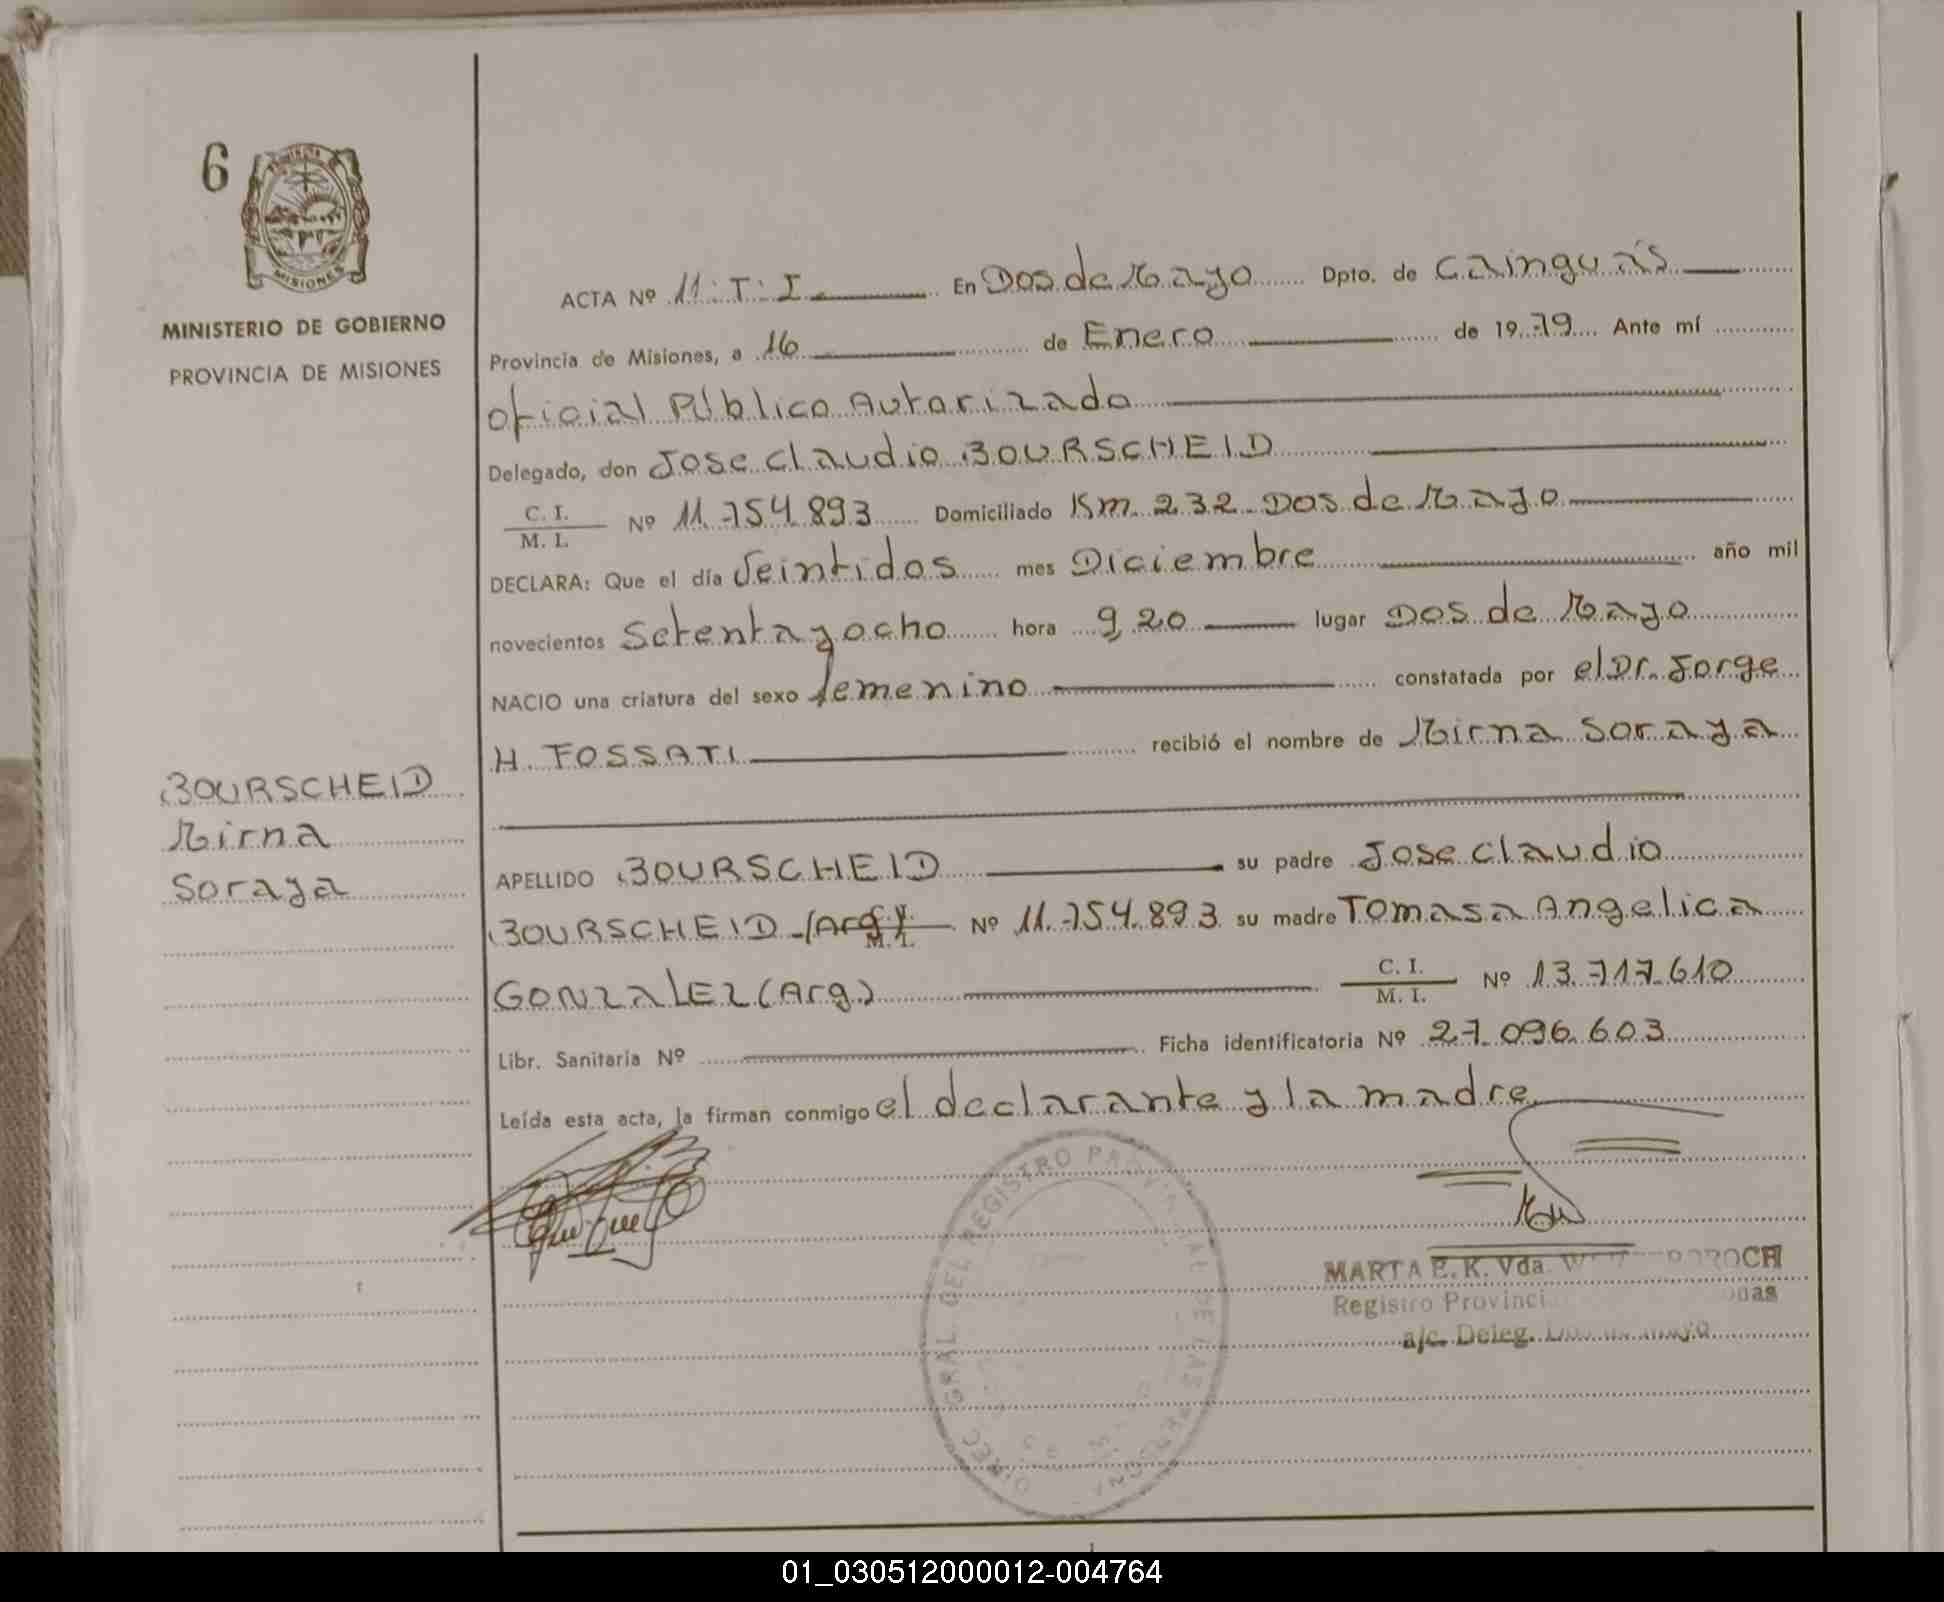 6
MISIONES
MINISTERIO DE GOBIERNO
PROVINCIA DE MISIONES
ACTA Nº 11: T: I. En Dos de Mayo Dpto. de Cainguás
Provincia de Misiones, a 16 de Enero de 1979 Ante mí
Oficial Público Autorizado
Delegado, don Jose Claudio BOURSCHEID
C. I.
M. I. Nº 11.754.893 Domiciliado Km. 232. Dos de Mayo
DECLARA: Que el día Veintidos mes Diciembre año mil
novecientos Setenta y ocho hora 9,20 lugar Dos de Mayo
NACIO una criatura del sexo femenino constatada por el Dr. Jorge
H. FOSSATI recibió el nombre de Mirna Soraya
BOURSCHEID
Mirna
Soraya
APELLIDO BOURSCHEID su padre Jose Claudio
BOURSCHEID (Arg) M. I. Nº 11.754.893 su madre Tomasa Angelica
GONZALEZ (Arg.) C. I.
M. I. Nº 13.717.610
Libr. Sanitaria Nº Ficha identificatoria Nº 27.096.603
Leída esta acta, la firman conmigo el declarante y la madre
DIREC. GRAL. DEL REGISTRO DE LAS PERSONAS
MARTA E. K. Vda.
Registro
a/c. Deleg.
01_030512000012-004764